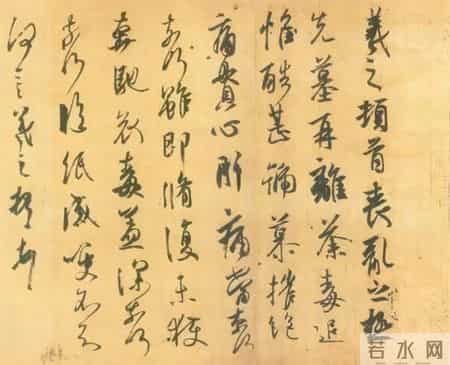 羲之頓首喪亂之極
先墓再離荼毒追
惟酷甚號慕摧絕
痛貫心肝痛當奈何
奈何雖即脩復未獲
奔馳哀毒益深奈何
奈何臨紙感哽不知
何言羲之頓首頓首
若水网